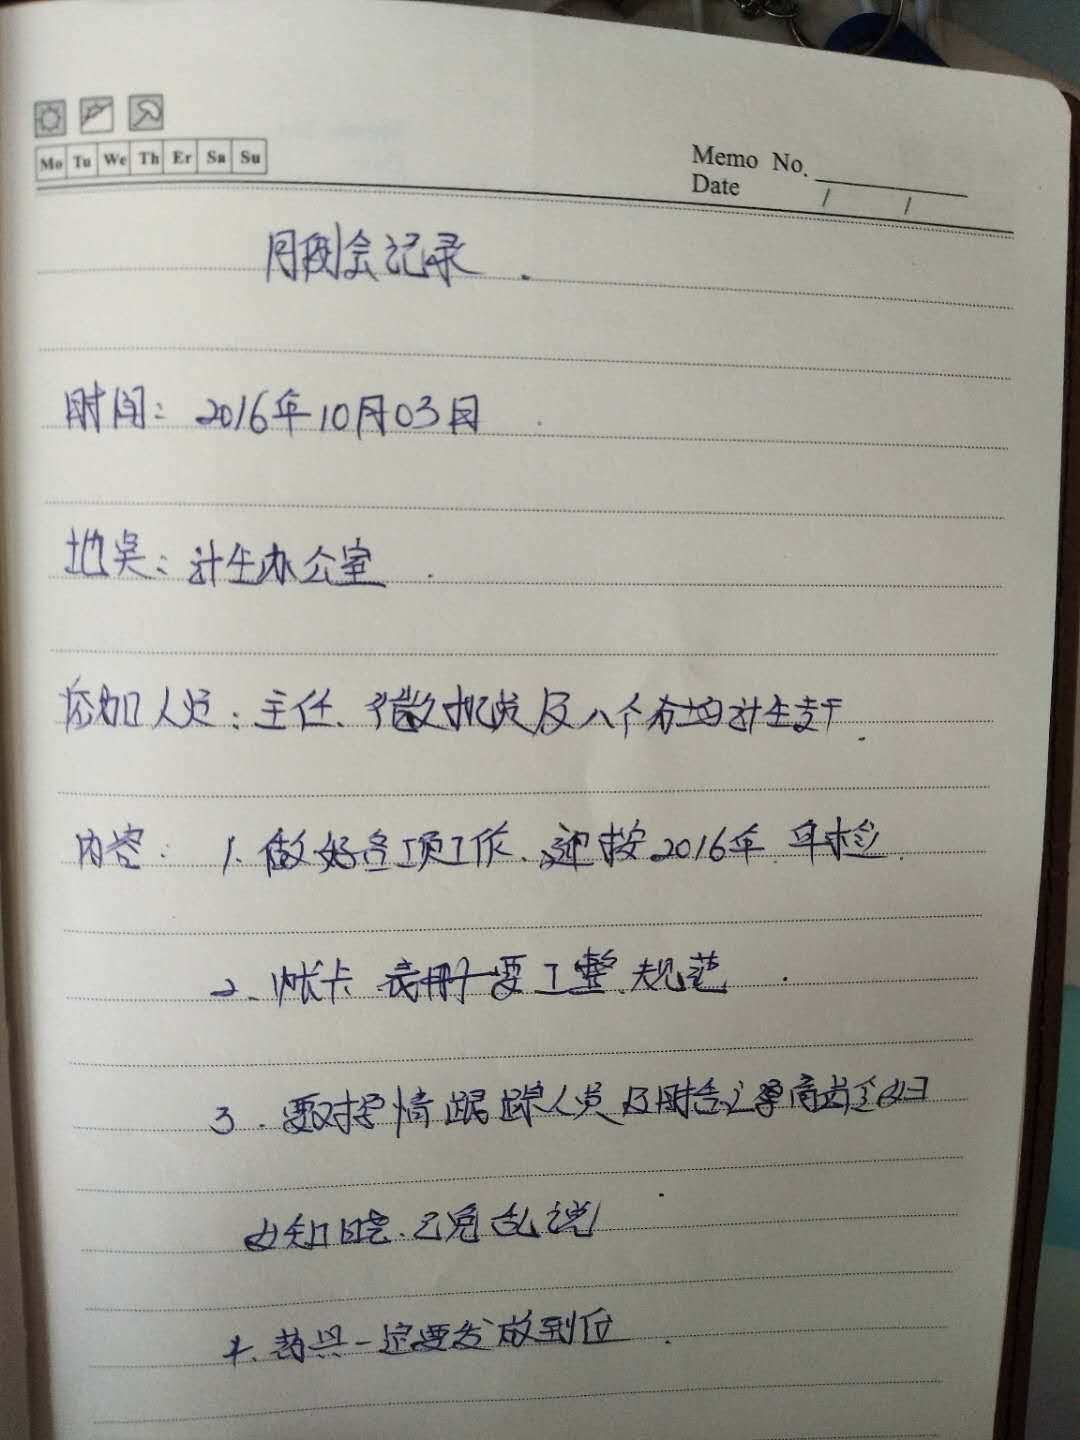 Mo Tu We Th Er Sa Su
Memo No.
Date / /
月例会记录.
时间: 2016年10月03日
地点: 计生办公室
参加人员: 主任、微机员及八个村的计生专干.
内容: 1. 做好各项工作、迎接2016年 年检.
2. 帐卡 表册要工整、规范
3. 要对孕情跟踪人员及时
知晓. 已免乱说
4. 药具一定要发放到位.